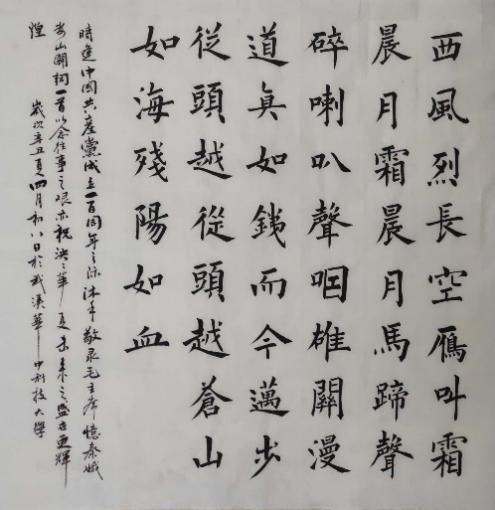 西風烈長空鴈叫霜
晨月霜晨月馬蹄聲
碎喇叭聲咽雄關漫
道真如銕而今邁步
從頭越從頭越蒼山
如海殘陽如血
時逢中國共產黨成立一百周年之际沐手敬录毛主席憶秦娥
娄山關词一首以念往事之艰亦祝泱泱華夏未来之盛世更輝
煌 歲次辛丑夏四月初八日於武漢華中科技大學